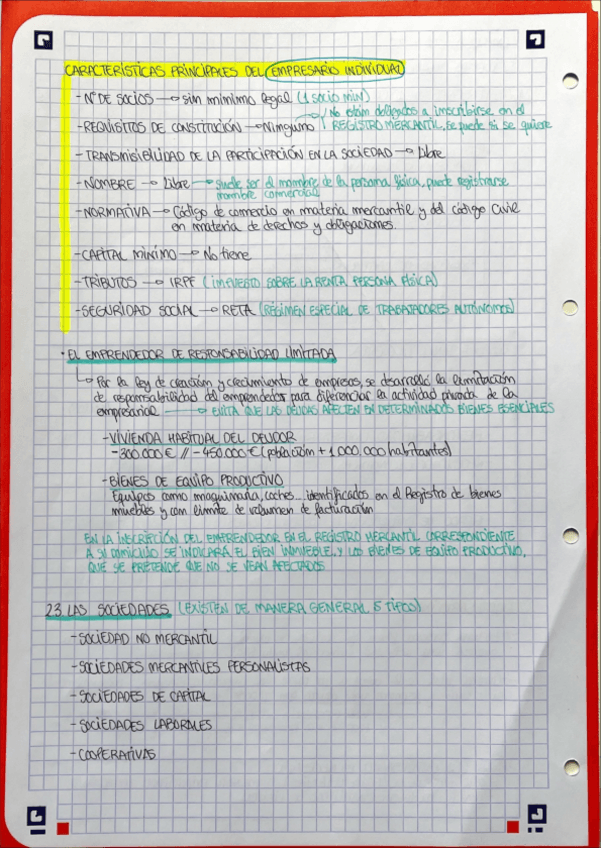 CARACTERÍSTICAS PRINCIPALES DEL EMPRESARIO INDIVIDUAL
- Nº DE SOCIOS → sin mínimo legal (1 socio mín)
- REQUISITOS DE CONSTITUCIÓN → Ninguno
No están obligados a inscribirse en el
REGISTRO MERCANTIL, se puede si se quiere
- TRANSMISIBILIDAD DE LA PARTICIPACIÓN EN LA SOCIEDAD → Libre
- NOMBRE → Libre → suele ser el nombre de la persona física, puede registrarse
nombre comercial
- NORMATIVA → Código de comercio en materia mercantil y del código Civil
en materia de derechos y obligaciones.
- CAPITAL MÍNIMO → No tiene
- TRIBUTOS → IRPF (IMPUESTO SOBRE LA RENTA PERSONA FÍSICA)
- SEGURIDAD SOCIAL → RETA (RÉGIMEN ESPECIAL DE TRABAJADORES AUTÓNOMOS)
· EL EMPRENDEDOR DE RESPONSABILIDAD LIMITADA
↳ Por la ley de creación y crecimiento de empresas, se desarrolló la limitación
de responsabilidad del emprendedor para diferenciar la actividad privada de la
empresarial → EVITA QUE LAS DEUDAS AFECTEN EN DETERMINADOS BIENES ESENCIALES
- VIVIENDA HABITUAL DEL DEUDOR
-300.000 € // -450.000 € (población + 1.000.000 habitantes)
- BIENES DE EQUIPO PRODUCTIVO
Equipos como maquinaria, coches... identificados en el Registro de bienes
muebles y con límite de volumen de facturación
EN LA INSCRIPCIÓN DEL EMPRENDEDOR EN EL REGISTRO MERCANTIL CORRESPONDIENTE
A SU DOMICILIO SE INDICARÁ EL BIEN INMUEBLE, Y LOS BIENES DE EQUIPO PRODUCTIVO,
QUE SE PRETENDE QUE NO SE VEAN AFECTADOS
2.3 LAS SOCIEDADES (EXISTEN DE MANERA GENERAL 5 TIPOS)
- SOCIEDAD NO MERCANTIL
- SOCIEDADES MERCANTILES PERSONALISTAS
- SOCIEDADES DE CAPITAL
- SOCIEDADES LABORALES
- COOPERATIVAS